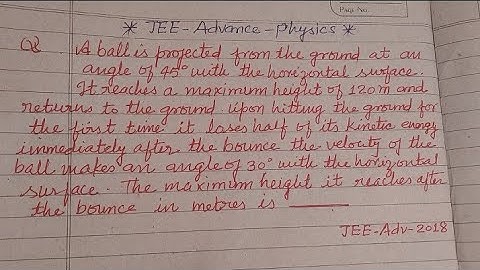 Page No.
* JEE - Advance - Physics *
Q A ball is projected from the ground at an
angle of 45° with the horizontal surface.
It reaches a maximum height of 120m and
returns to the ground upon hitting the ground for
the first time it loses half of its kinetic energy
immediately after the bounce the velocity of the
ball makes an angle of 30° with the horizontal
surface. The maximum height it reaches after
the bounce in metres is
JEE-Adv-2018